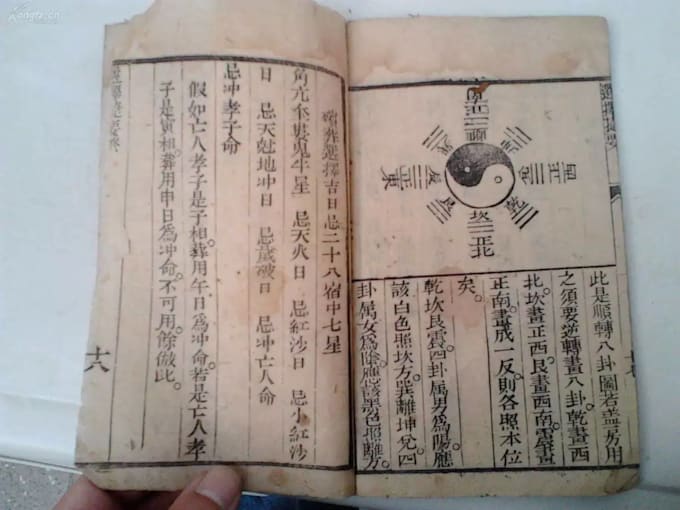 選擇
正南
離
坤
正西
兌
乾
坎
正北
艮
震
正東
此是順轉八卦圖若蓋房用
之須要逆轉畫八卦乾畫西
北。坎畫正西。艮畫西南。震畫
正南。畫成一反則各照本位
矣。
乾坎艮震四卦屬男為陽。應
該白色照坎方。巽離坤兌四
卦属女為陰。應該黑色照離方。
葬選擇吉日 忌二十八宿中七星
角亢奎婁鬼牛星 忌天火日 忌紅沙日 忌小紅沙
日 忌天尅地冲日 忌歲破日 忌冲亡人命
忌冲孝子命
假如亡人孝子是子相。葬用午日為冲命。若是亡人孝
子是寅相。葬用申日為冲命。不可用。餘倣此。
十八